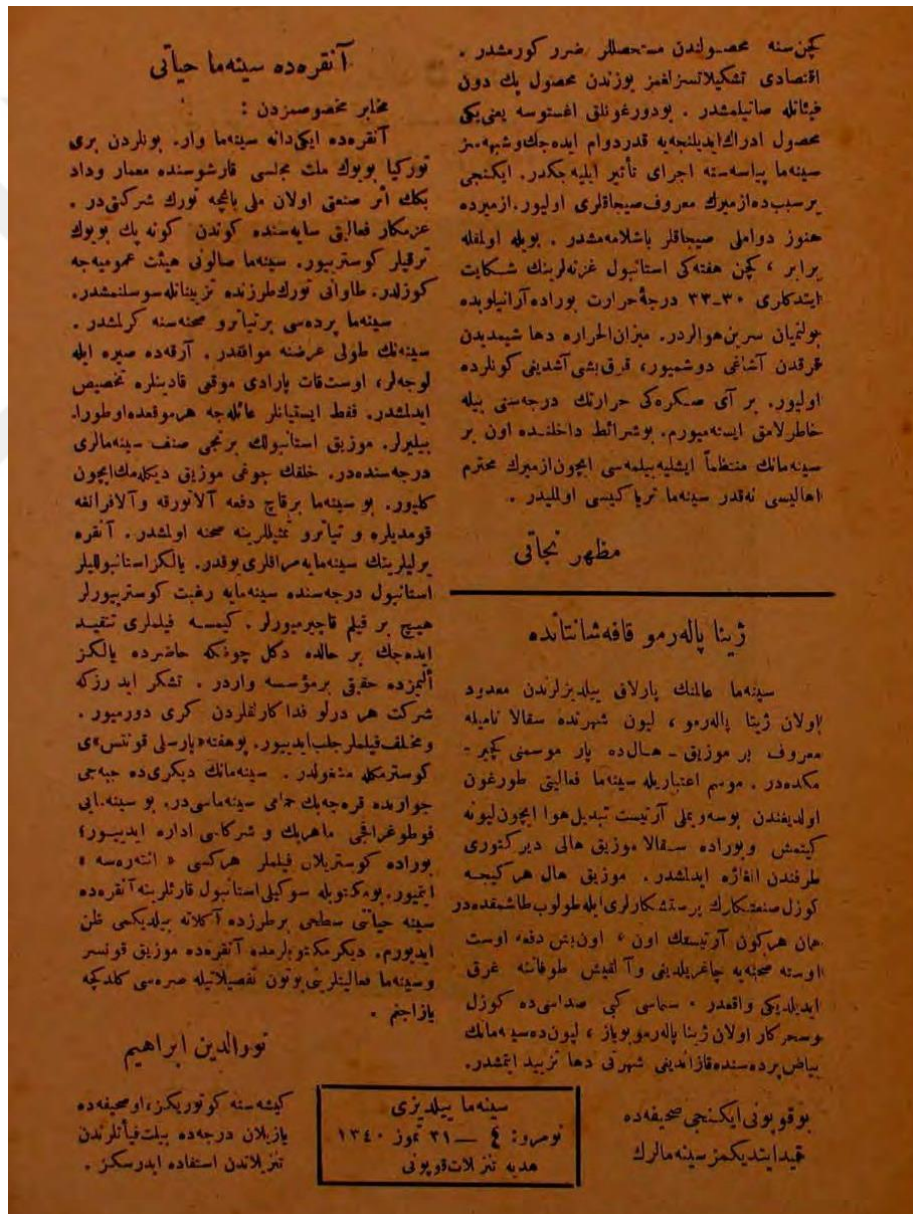 كچن سنه محصولندن مستحصللر ضرر كورمشدر .
اقتصادى تشكيلاتسزلغمز يوزندن محصول پك دون
فيئاتله صاتيلمشدر . بو دورغونلق اغستوسه يعنى يكى
محصول ادراك ايديلنجه‌يه قدر دوام ايده‌جك و شبهه‌سز
سينه‌ما پياسه‌سنه اجراى تأثير ايليه‌جكدر. ايكنجى
برسبب ده ازميرك معروف صيجاقلرى اوليور. ازميرده
هنوز دواملى صيجاقلر باشلامه‌مشدر . بويله اولمقله
برابر ، كچن هفته‌كى استانبول غزته‌لرينك شكايت
ايتدكلرى ٣٠-٣٣ درجهٔ حرارت بوراده آرانيلوبده
بولنميان سرين هوالردر. ميزان الحراره دها شيمديدن
قرقدن آشاغى دوشميور، قرق بشى آشديغى كونلرده
اوليور. بر آى صكره‌كى حرارتك درجه‌سنى بيله
خاطرلامق ايسته‌ميورم. بو شرائط داخلنده اون بر
سينه‌مانك منتظماً ايشليه‌بيلمه‌سى ايچون ازميرك محترم
اهاليسى نه‌قدر سينه‌ما ترياكيسى اولمليدر .
مظهر نجاتى
ژينا پاله‌رمو قافه‌شانتانده
سينه‌ما عالمنك پارلاق ييلديزلرندن معدود
اولان ژينا پاله‌رمو ، ليون شهرنده سقالا ناميله
معروف بر موزيق - هال‌ده ياز موسمنى كچير-
مكده‌در . موسم اعتباريله سينه‌ما فعاليتى طورغون
اولديغندن بو سه‌ويملى آرتيست تبديل هوا ايچون ليونه
كيتمش و بوراده سقالا موزيق هالى ديركتورى
طرفندن انغاژه ايدلمشدر . موزيق هال هر كيجه
كوزل صنعتكارك پرستشكارلرى ايله طولوب طاشمقده‌در
همان هركون آرتيستك اون ، اون بش دفعه اوست
اوسته صحنه‌يه چاغريلديغى و آلقيش طوفاننه غرق
ايديلديكى واقعدر . سيماسى كبى صداسى ده كوزل
و سحركار اولان ژينا پاله‌رمو بو ياز ، ليون ده سينه‌مانك
بياض پرده‌سنده قازانديغى شهرتى دها تزييد ايتمشدر.
آنقره‌ده سينه‌ما حياتى
مخابر مخصوصمزدن :
آنقره‌ده ايكى دانه سينه‌ما وار. بونلردن برى
توركيا بويوك ملت مجلسى قارشوسنده معمار وداد
بكك اثر صنعتى اولان ملى باغچه تورك شركتى‌در .
عزمكار فعاليتى سايه‌سنده كوندن كونه پك بويوك
ترقيلر كوستريور. سينه‌ما صالونى هيئت عموميه‌جه
كوزلدر. طاوانى تورك طرزنده تزييناتله سوسلنمشدر.
سينه‌ما پرده‌سى بر تياترو صحنه‌سنه كرلمشدر .
سينه‌نك طولى عرضنه موافقدر . آرقه‌ده صيره ايله
لوجه‌لر، اوست قات پارادى موقعى قادينلره تخصيص
ايدلمشدر. فقط ايستيانلر عائله‌جه هر موقعده اوطورا-
بيليرلر. موزيق استانبولك برنجى صنف سينه‌مالرى
درجه‌سنده‌در. خلقك چوغى موزيق ديكله‌مك ايچون
كليور. بو سينه‌ما برقاچ دفعه آلاتورقه و آلافرانغه
قومديلره و تياترو تمثيللرينه صحنه اولمشدر . آنقره
يرليلرينك سينه‌مايه مراقلرى يوقدر. يالكز استانبوللیلر
استانبول درجه‌سنده سينه‌مايه رغبت كوستريیورلر
هيچ بر فيلم قاچيرميورلر . كيمسه فيلملرى تنقيد
ايده‌جك بر حالده دكل چونكه حاضرده يالكز
المزده حقيقى بر مؤسسه واردر . تشكر ايدرزكه
شركت هر درلو فداكارلقلردن كرى دورميور .
و مختلف فيلملر جلب ايدييور. بو هفته «پارسلى قونتس»ى
كوسترمكله مشغولدر . سينه‌مانك ديكرى ده جبه‌جى
جوارنده قره‌جه‌بك حمامى سينه‌ماسى‌در. بو سينه‌مايى
فوطوغرافجى ماهر بك و شركاسى اداره ايدييور؛
بوراده كوستريلان فيلملر هركسى « انته‌ره‌سه »
ايتميور. بو مكتوبله سوكيلى استانبول قارئلرينه آنقره‌ده
سينه حياتى سطحى بر طرزده آكلاته بيلديكمى ظن
ايديورم. ديكر مكتوبلرمده آنقره‌ده موزيق قونسر
و سينه‌ما فعاليتلرينى بوتون تفصيلاتيله صره‌سى كلدكجه
يازاجغم .
نورالدين ابراهيم
بو قوپونى ايكنجى صحيفه‌ده
قيد ايتديكمز سينه‌مالرك
سينه‌ما ييلديزى
نومرو: ٤ — ٣١ تموز ١٣٤٠
هديه تنزلات قوپونى
كيشه‌سنه كوتوريكز، او صحيفه‌ده
يازيلان درجه‌ده بيلت فيأتلرندن
تنزيلاتدن استفاده ايدرسكز .